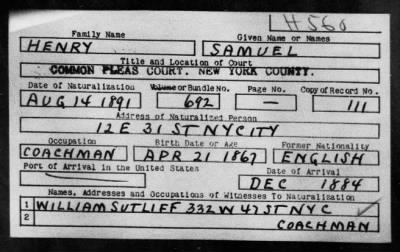 LH560
Family Name Given Name or Names
HENRY SAMUEL
Title and Location of Court
COMMON PLEAS COURT. NEW YORK COUNTY.
Date of Naturalization Volume or Bundle No. Page No. Copy of Record No.
AUG 14 1891 692 — 111
Address of Naturalized Person
12 E 31 ST NYCITY
Occupation Birth Date or Age Former Nationality
COACHMAN APR 21 1867 ENGLISH
Port of Arrival in the United States Date of Arrival
DEC 1884
Names, Addresses and Occupations of Witnesses To Naturalization
1 WILLIAM SUTLIFF 332 W 47 ST NYC
2 COACHMAN